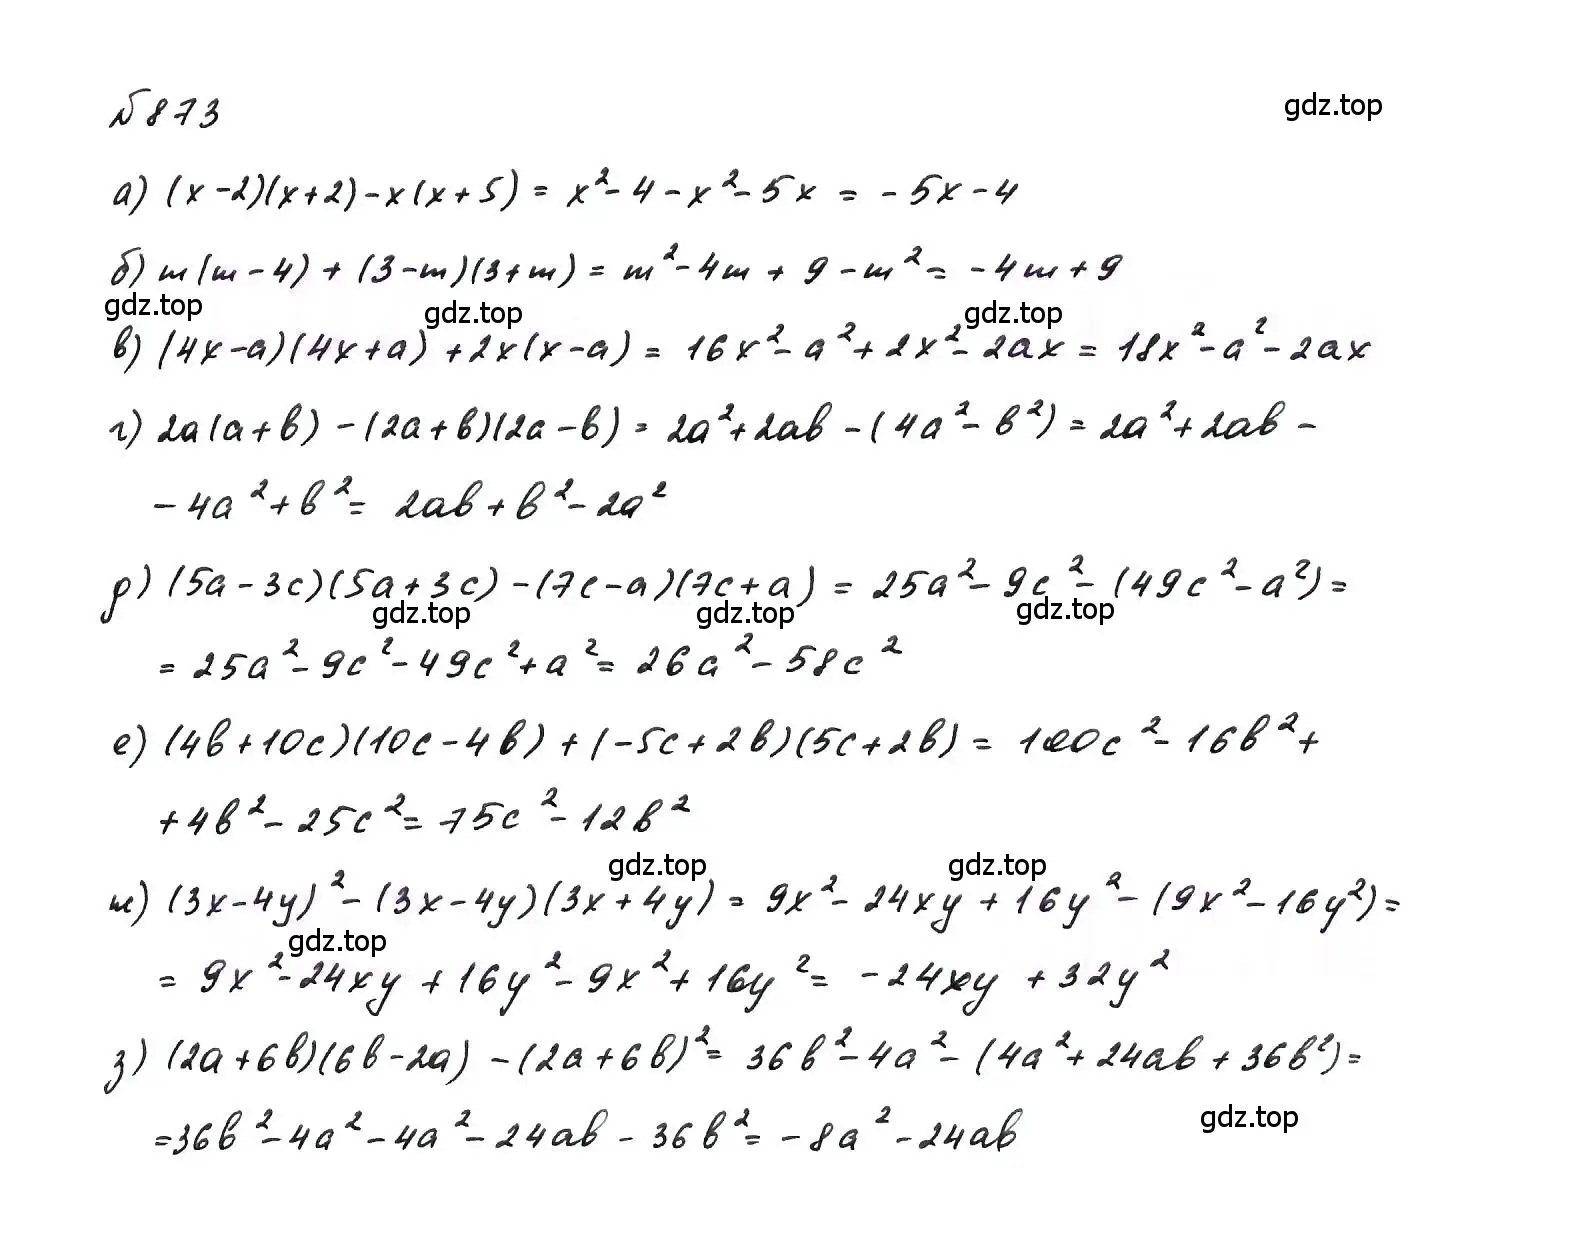 №873
gdz.top
а) (x-2)(x+2)-x(x+5) = x²-4-x²-5x = -5x-4
б) m(m-4)+(3-m)(3+m) = m²-4m+9-m² = -4m+9
gdz.top gdz.top gdz.top
в) (4x-a)(4x+a)+2x(x-a) = 16x²-a²+2x²-2ax = 18x²-a²-2ax
г) 2a(a+b)-(2a+b)(2a-b) = 2a²+2ab-(4a²-b²) = 2a²+2ab-
-4a²+b² = 2ab+b²-2a²
д) (5a-3c)(5a+3c)-(7c-a)(7c+a) = 25a²-9c²-(49c²-a²) =
gdz.top gdz.top gdz.top
= 25a²-9c²-49c²+a² = 26a²-58c²
е) (4b+10c)(10c-4b)+(-5c+2b)(5c+2b) = 100c²-16b²+
+4b²-25c² = 75c²-12b²
gdz.top gdz.top
ж) (3x-4y)²-(3x-4y)(3x+4y) = 9x²-24xy+16y²-(9x²-16y²) =
gdz.top
= 9x²-24xy+16y²-9x²+16y² = -24xy+32y²
з) (2a+6b)(6b-2a)-(2a+6b)² = 36b²-4a²-(4a²+24ab+36b²) =
=36b²-4a²-4a²-24ab-36b² = -8a²-24ab
gdz.top